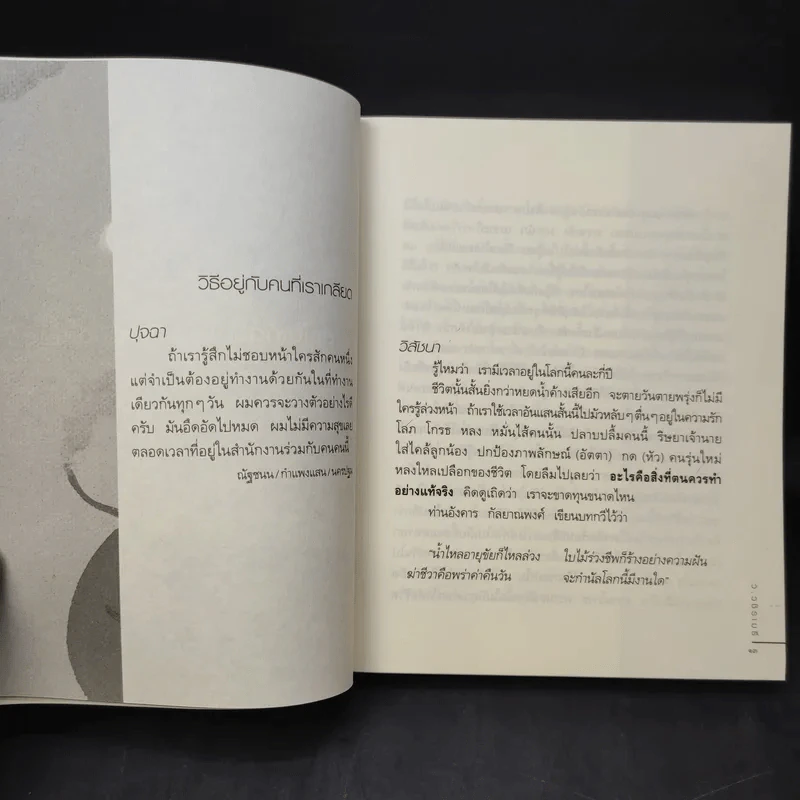 วิธีอยู่กับคนที่เราเกลียด
ปุจฉา
ถ้าเรารู้สึกไม่ชอบหน้าใครสักคนหนึ่ง
แต่จำเป็นต้องอยู่ทำงานด้วยกันในที่ทำงาน
เดียวกันทุกๆวัน ผมควรจะวางตัวอย่างไรดี
ครับ มันอึดอัดไปหมด ผมไม่มีความสุขเลย
ตลอดเวลาที่อยู่ในสำนักงานร่วมกับคนคนนี้
ณัฐชนน/กำแพงแสน/นครปฐม
วิสัชนา
รู้ไหมว่า เรามีเวลาอยู่ในโลกนี้คนละกี่ปี
ชีวิตนั้นสั้นยิ่งกว่าหยดน้ำค้างเสียอีก จะตายวันตายพรุ่งก็ไม่มี
ใครรู้ล่วงหน้า ถ้าเราใช้เวลาอันแสนสั้นนี้ไปมัวหลับๆตื่นๆอยู่ในความรัก
โลภ โกรธ หลง หมั่นไส้คนนั้น ปลาบปลื้มคนนี้ ริษยาเจ้านาย
ใส่ไคล้ลูกน้อง ปกป้องภาพลักษณ์ (อัตตา) กด (หัว) คนรุ่นใหม่
หลงใหลเปลือกของชีวิต โดยลืมไปเลยว่า อะไรคือสิ่งที่ตนควรทำ
อย่างแท้จริง คิดดูเถิดว่า เราจะขาดทุนขนาดไหน
ท่านอังคาร กัลยาณพงศ์ เขียนบทกวีไว้ว่า
"น้ำไหลอายุขัยก็ไหลล่วง ใบไม้ร่วงชีพก็ร้างอย่างความฝัน
ฆ่าชีวาคือพร่าค่าคืนวัน จะกำนัลโลกนี้มีงานใด"
ว.วชิรเมธี